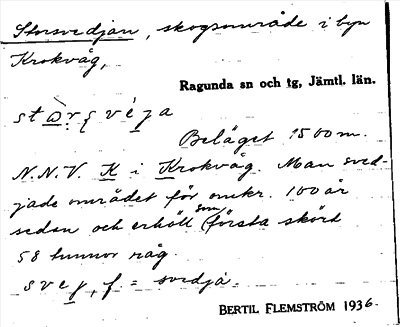 Storsvedjan, skogsområde i byn
Krokvåg,
Ragunda sn och tg, Jämtl. län.
Beläget 1500 m.
N.N.V. K i Krokvåg. Man sved-
jade området för omkr. 100 år
sedan och erhöll som första skörd
58 tunnor råg.
f. = svedja.
BERTIL FLEMSTRÖM 1936.